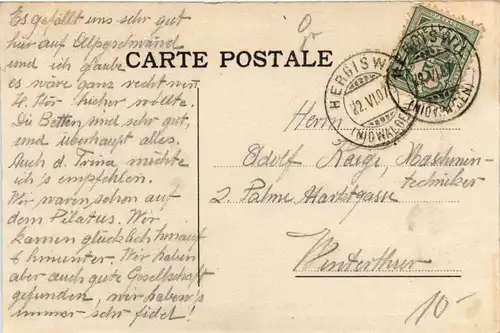 Es gefällt uns sehr gut
hier auf Alpgschwänd
und ich glaube
es wäre ganz recht wenn
H. hieher wollte.
Die Betten sind sehr gut,
und überhaupt alles.
Auch d. Trina möchte
ich's empfehlen.
Wir waren schon auf
dem Pilatus. Wir
kamen glücklich hinauf
& hinunter. Wir haben
aber auch gute Gesellschaft
gefunden, wir haben's
immer sehr fidel!
CARTE POSTALE
HERGISWIL
22.VI.07
(NIDWALDEN)
HERGISWIL
22.VI.07
(NIDWALDEN)
Herrn
Adolf Kaegi, Maschinen-
techniker
2. Palme Marktgasse
Winterthur
10-